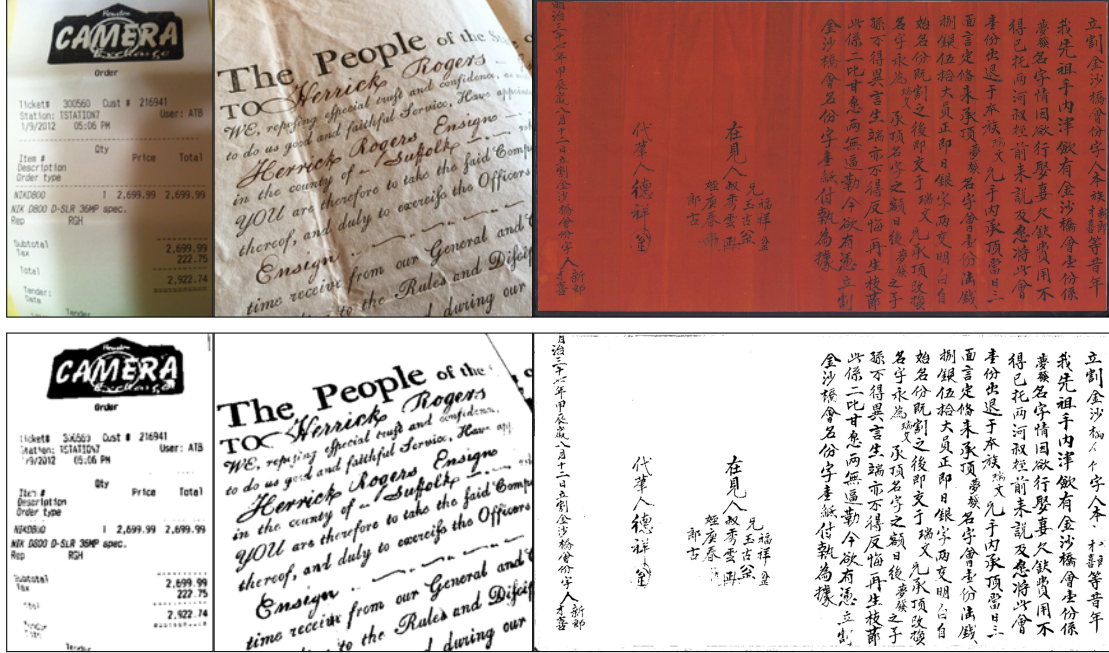 Houston
CAMERA
Exchange
Order
Ticket# 300560 Cust # 216941
Station: TSTATION7 User: ATB
1/9/2012 05:06 PM
Qty
Item # Price Total
Description
Order type
NIKD800 1 2,699.99 2,699.99
NIK D800 D-SLR 36MP spec.
Rep RGH
Subtotal 2,699.99
Tax 222.75
Total 2,922.74
Tender:
The People of the
TO Herrick Rogers
WE, reposing especial trust and confidence,
to do us good and faithful Service, Have
Herrick Rogers Ensign
in the county of Suffolk
YOU are therefore to take the said
thereof, and duly to exercise the Officers
Ensign
time receive from our General and
to the Rules and
during our
立割金沙橋會份字人本族新郎才喜等昔年
我先祖手內津飲有金沙橋會壹份係
夢發名字情因欲行娶妻欠缺費用不
得已托兩河叔姪前來說及愿將此會
壹份出退于本族瑞文兄手內承頂當日三
面言定條來承頂夢發名字會壹份
捌銀伍拾大員正即日銀字兩交明白自
始名份既割之後即交于瑞文兄承頂改換
名字永為瑞文承頂名字之額日後夢發之子
孫不得異言生端亦不得反悔再生枝節
此係二比甘愿兩無逼勒今欲有憑立割
金沙橋會名份字壹紙付執為據
在見人
代筆人德祥
明治三十七年甲辰歲八月十二日立割金沙橋會份字人新郎才喜
Houston
CAMERA
Exchange
Order
Cust # 216941
User: ATB
/9/2012 05:06 PM
Qty
Item # Price Total
Description
Order type
NIKD800 1 2,699.99 2,699.99
NIK D800 D-SLR 36MP spec.
Rep RGH
Subtotal 2,699.99
Tax 222.75
2,922.74
The People of the
TO Herrick Rogers
WE, reposing especial trust and confidence,
to do us good and faithful Service, Have
Herrick Rogers Ensign
in the county of Suffolk
YOU are therefore to take the said
thereof, and duly to exercise the Officers
Ensign
time receive from our General and
to the Rules and
during our
立割金沙
字人
等昔年
我先祖手內津飲有金沙橋會壹份係
夢發名字情因欲行娶妻欠缺費用不
得已托兩河叔姪前來說及愿將此會
壹份出退于本族瑞文兄手內承頂當日三
面言定條來承頂夢發名字會壹份
捌銀伍拾大員正即日銀字兩交明白自
始名份既割之後即交于瑞文兄承頂改換
名字永為瑞文承頂名字之額日後夢發之子
孫不得異言生端亦不得反悔再生枝節
此係二比甘愿兩無逼勒今欲有憑立割
金沙橋會名份字壹紙付執為據
在見人
代筆人德祥
治三十七年甲辰歲八月十二日立割金沙橋會份字人新郎才喜